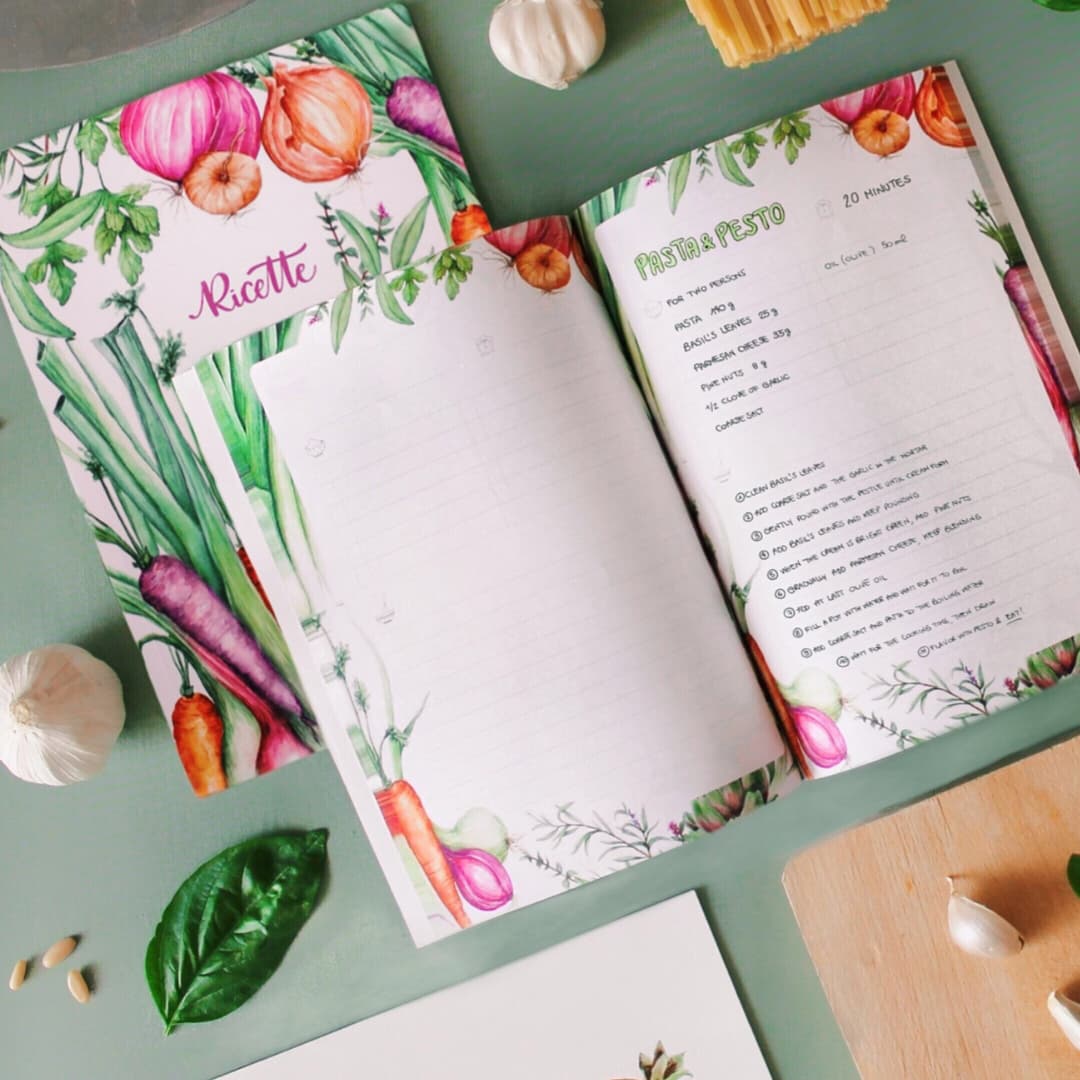 Ricette
PASTA & PESTO
20 MINUTES
FOR TWO PERSONS
OIL (OLIVE) 50 ml
PASTA 140 g
BASIL'S LEAVES 25 g
PARMESAN CHEESE 35g
PINE NUTS 8 g
1/2 CLOVE OF GARLIC
COARSE SALT
① CLEAN BASIL'S LEAVES
② ADD COARSE SALT AND THE GARLIC IN THE MORTAR
③ GENTLY POUND WITH THE PESTLE UNTIL CREAM FORM
④ ADD BASIL'S LEAVES AND KEEP POUNDING
⑤ WHEN THE CREAM IS BRIGHT GREEN, ADD PINE NUTS
⑥ GRADUALLY ADD PARMESAN CHEESE, KEEP BLENDING
⑦ ADD AT LAST OLIVE OIL
⑧ FILL A POT WITH WATER AND WAIT FOR IT TO BOIL
⑨ ADD COARSE SALT AND PASTA TO THE BOILING WATER
⑩ WAIT FOR THE COOKING TIME, THEN DRAIN
⑪ FLAVOR WITH PESTO & EAT!